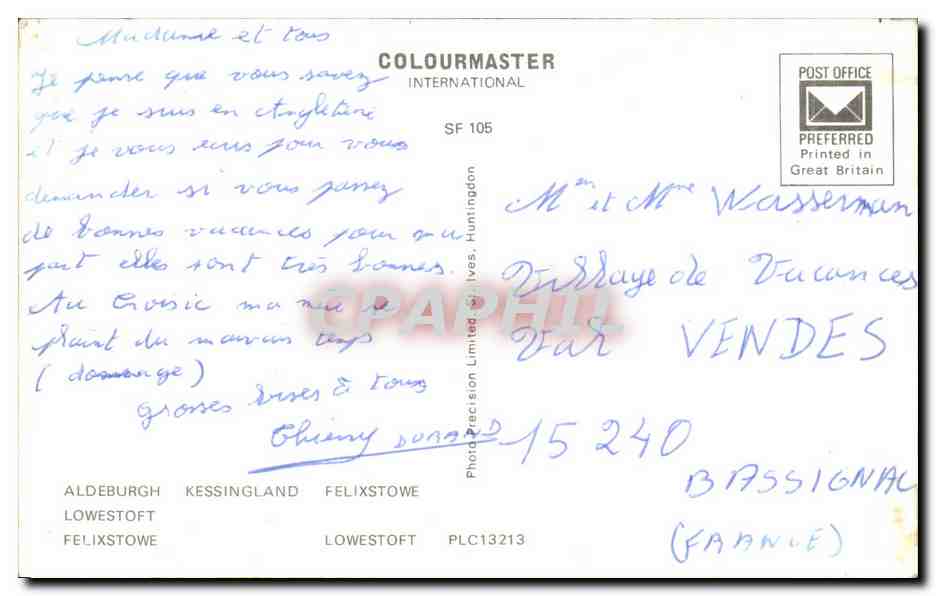 Madame et tous
Je pense que vous savez
que je suis en Angleterre
et je vous écris pour vous
demander si vous passez
de bonnes vacances pour ma
part elles sont très bonnes.
Au Croisic ma mère se
plaint du mauvais temps
(dommage)
Grosses bises à tous
Thierry DURAND
COLOURMASTER
INTERNATIONAL
SF 105
POST OFFICE
PREFERRED
Printed in
Great Britain
Photo Precision Limited, St. Ives, Huntingdon
Mr et Mme Wasserman
Village de Vacances
Val VENDES
15240
BASSIGNAC
(FRANCE)
CPAPHIL
ALDEBURGH KESSINGLAND FELIXSTOWE
LOWESTOFT
FELIXSTOWE LOWESTOFT PLC13213